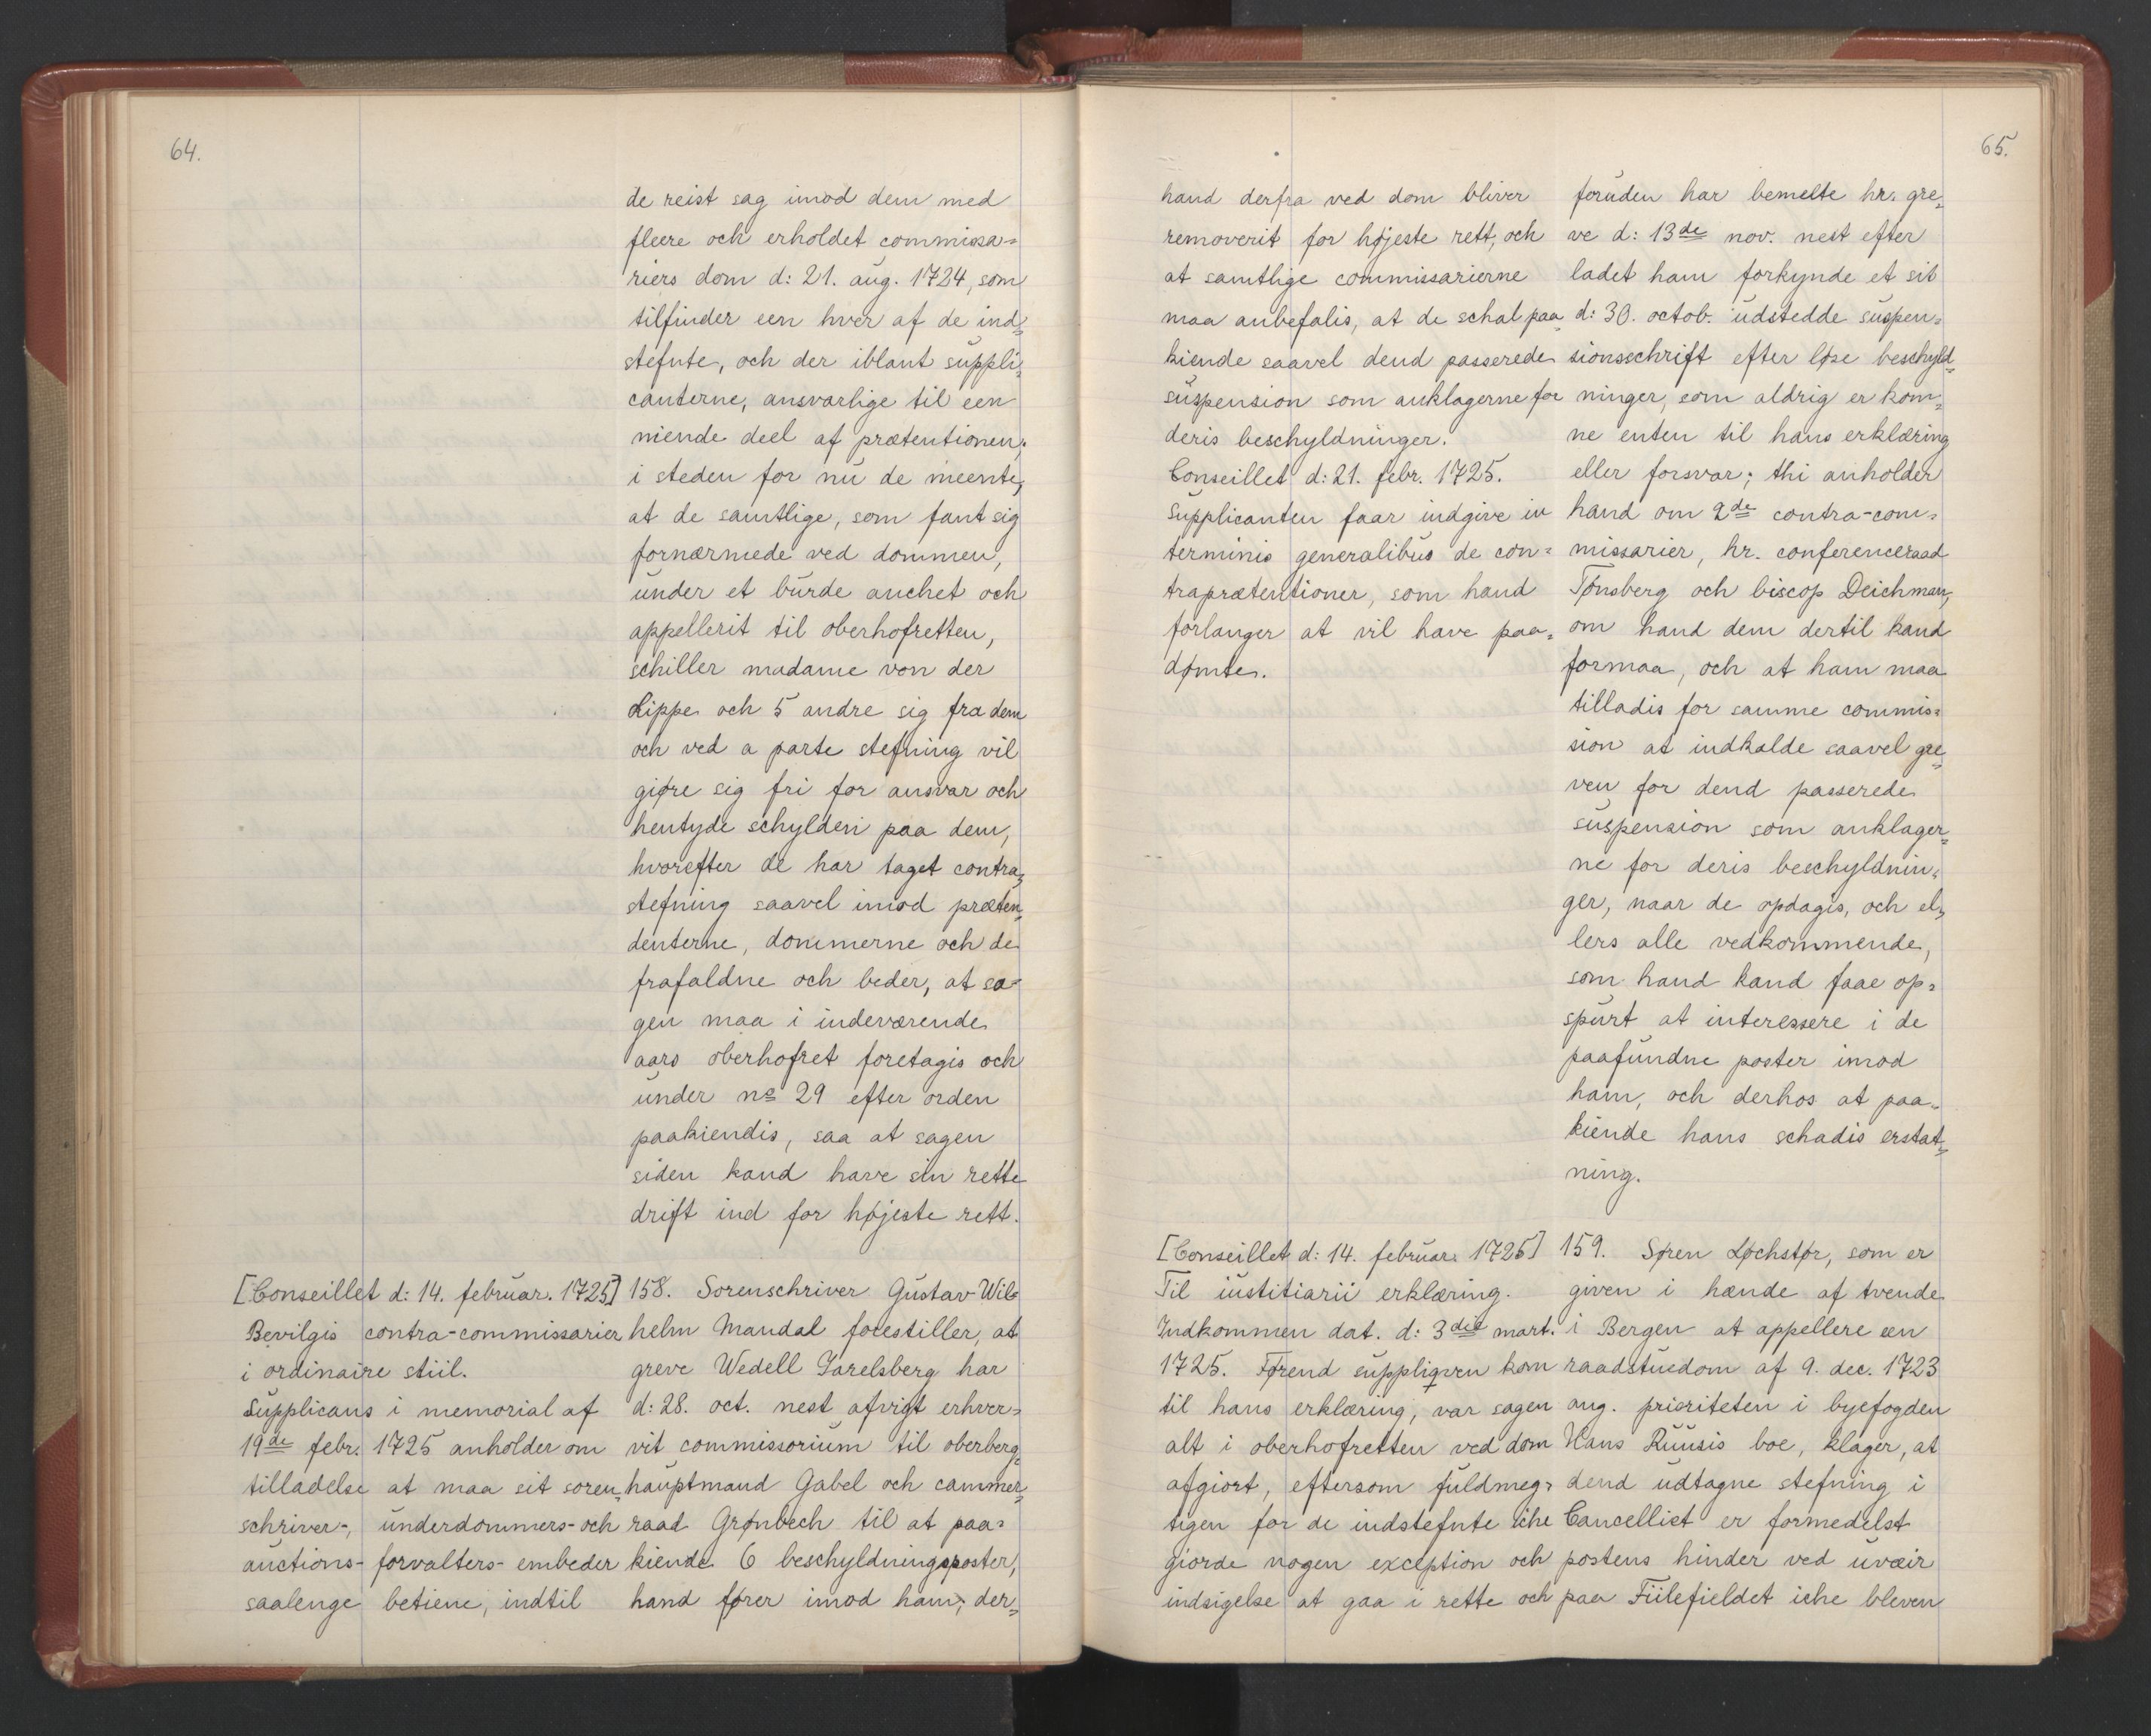 64.
de reist sag imod dem med
fleere och erholdet commissa=
riers dom d: 21. aug. 1724, som
tilfinder een hver af de ind=
stefnte, och der iblant suppli=
canterne, ansvarlige til een
niende deel af prætentionen;
i steden for nu de meente,
at de samtlige, som fant sig
fornærmede ved dommen,
under et burde anchet och
appellerit til oberhofretten,
schiller madame von der
Lippe och 5 andre sig fra dem
och ved a parte stefning vil
giøre sig fri for ansvar och
hentyde schylden paa dem,
hvorefter de har taget contra=
stefning saavel imod præten=
denterne, dommerne och de
frafaldne och beder, at sa=
gen maa i indeværende
aars oberhofret foretagis och
under no 29 efter orden
paakiendis, saa at sagen
siden kand have sin rette
drift ind for højeste rett.
[Conseillet d: 14. februar. 1725]
Bevilgis contra-commissarier
i ordinaire stiil.
Supplicans i memorial af
19de febr. 1725 anholder om
tilladelse at maa sit soren=
schriver-, underdommers- och
auctions- forvalters- embeder
saalenge betiene, indtil
158. Sorenschriver Gustav Wil=
helm Mandal forestiller, at
greve Wedell Jarelsberg har
d: 28. oct. nest afvigt erhver=
vit commissorium til oberberg=
hauptmand Gabel och cammer=
raad Grønbech til at paa=
kiende 6 beschyldningsposter,
hand fører imod ham; der=
65.
hand derfra ved dom bliver
removerit for højeste rett, och
at samtlige commissarierne
maa anbefalis, at de schal paa=
kiende saavel dend passerede
suspension som anklagerne for
deris beschyldninger.
Conseillet d: 21. febr. 1725.
Supplicanten faar indgive in
terminis generalibus de con=
traprætentioner, som hand
forlanger at vil have paa=
dømte.
foruden har bemelte hr. gre=
ve d: 13de nov. nest efter
ladet ham forkynde et sit
d: 30. octob. udstedde suspen=
sionsschrift efter løse beschyld=
ninger, som aldrig er kom=
ne enten til hans erklæring
eller forsvar; thi anholder
hand om 2de contra-com=
missarier, hr. conferenceraad
Tønsberg och biscop Deichman,
om hand dem dertil kand
formaa, och at ham maa
tilladis for samme commis=
sion at indkalde saavel gre=
ven for dend passerede
suspension som anklager=
ne for deris beschyldnin=
ger, naar de opdagis, och el=
lers alle vedkommende,
som hand kand faae op=
spurt at interessere i de
paafundne poster imod
ham, och derhos at paa=
kiende hans schadis erstat=
ning.
[Conseillet d: 14. februar. 1725]
Til iustitiarii erklæring.
Indkommen dat. d: 3die mart.
1725. Førend suppliqven kom
til hans erklæring, var sagen
alt i oberhofretten ved dom
afgiort, eftersom fuldmeg=
tigen for de indstefnte iche
giorde nogen exception och
indsigelse at gaa i rette och
159. Søren Lochstør, som er
given i hænde af tvende
i Bergen at appellere een
raadstuedom af 9. dec. 1723
ang. prioriteten i byefogden
Hans Ruusis boe, klager, at
dend udtagne stefning i
Cancelliet er formedelst
postens hinder ved uvæir
paa Fiilefieldet iche bleven